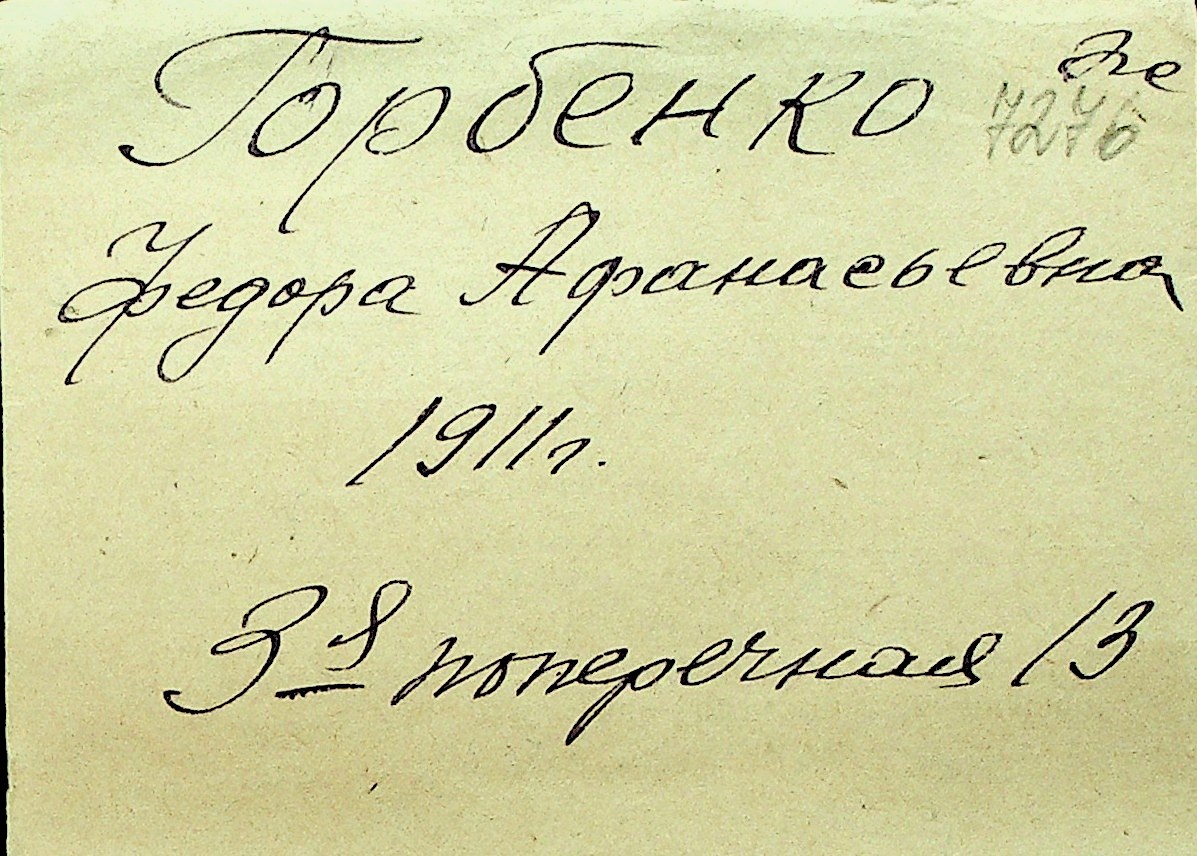 Горбенко
7276
Федора Афанасьевна
1911г.
3я поперечная 13